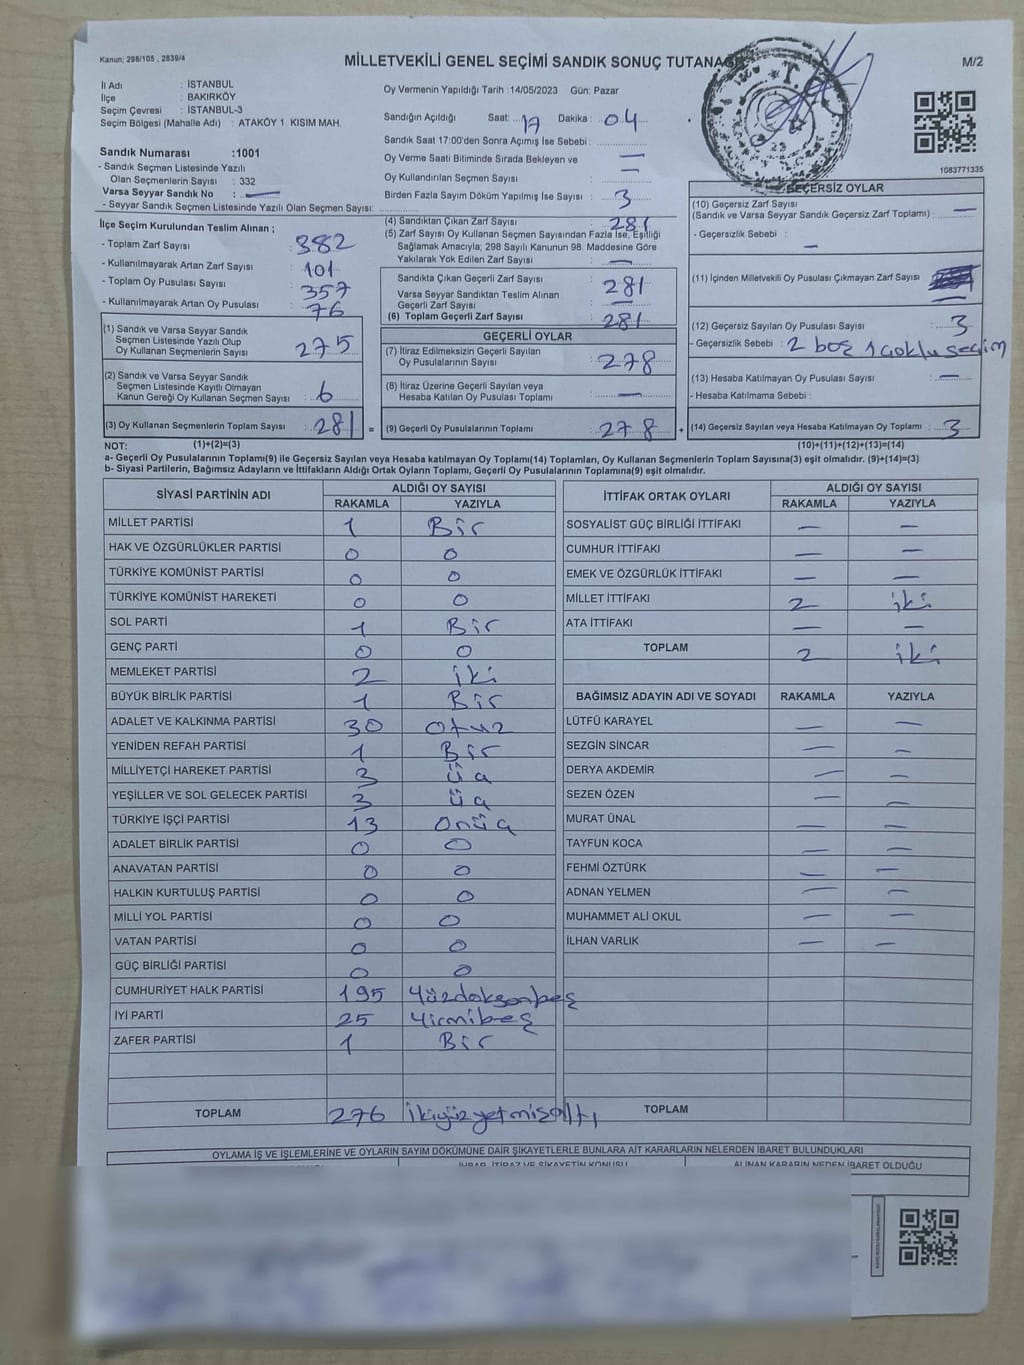 Kanun: 298/105 , 2839/4
MİLLETVEKİLİ GENEL SEÇİMİ SANDIK SONUÇ TUTANAĞI
M/2
İl Adı : İSTANBUL
İlçe : BAKIRKÖY
Seçim Çevresi : İSTANBUL-3
Seçim Bölgesi (Mahalle Adı) : ATAKÖY 1. KISIM MAH.
Sandık Numarası :1001
- Sandık Seçmen Listesinde Yazılı
Olan Seçmenlerin Sayısı : 332
Varsa Seyyar Sandık No : —
- Seyyar Sandık Seçmen Listesinde Yazılı Olan Seçmen Sayısı:
Oy Vermenin Yapıldığı Tarih :14/05/2023 Gün: Pazar
Sandığın Açıldığı Saat: 17 Dakika : 04
Sandık Saat 17:00'den Sonra Açımış İse Sebebi :
Oy Verme Saati Bitiminde Sırada Bekleyen ve
Oy Kullandırılan Seçmen Sayısı : —
Birden Fazla Sayım Döküm Yapılmış İse Sayısı : 3
1083771335
İlçe Seçim Kurulundan Teslim Alınan ;
- Toplam Zarf Sayısı : 382
- Kullanılmayarak Artan Zarf Sayısı : 101
- Toplam Oy Pusulası Sayısı : 357
- Kullanılmayarak Artan Oy Pusulası : 76
(1) Sandık ve Varsa Seyyar Sandık
Seçmen Listesinde Yazılı Olup
Oy Kullanan Seçmenlerin Sayısı : 275
(2) Sandık ve Varsa Seyyar Sandık
Seçmen Listesinde Kayıtlı Olmayan
Kanun Gereği Oy Kullanan Seçmen Sayısı : 6
(3) Oy Kullanan Seçmenlerin Toplam Sayısı : 281 =
(4) Sandıktan Çıkan Zarf Sayısı : 281
(5) Zarf Sayısı Oy Kullanan Seçmen Sayısından Fazla İse, Eşitliği
Sağlamak Amacıyla; 298 Sayılı Kanunun 98. Maddesine Göre
Yakılarak Yok Edilen Zarf Sayısı : —
Sandıkta Çıkan Geçerli Zarf Sayısı : 281
Varsa Seyyar Sandıktan Teslim Alınan
Geçerli Zarf Sayısı : —
(6) Toplam Geçerli Zarf Sayısı : 281
GEÇERLİ OYLAR
(7) İtiraz Edilmeksizin Geçerli Sayılan
Oy Pusulalarının Sayısı : 278
(8) İtiraz Üzerine Geçerli Sayılan veya
Hesaba Katılan Oy Pusulası Toplamı : —
(9) Geçerli Oy Pusulalarının Toplamı : 278 +
GEÇERSİZ OYLAR
(10) Geçersiz Zarf Sayısı
(Sandık ve Varsa Seyyar Sandık Geçersiz Zarf Toplamı) : —
- Geçersizlik Sebebi : —
(11) İçinden Milletvekili Oy Pusulası Çıkmayan Zarf Sayısı —
(12) Geçersiz Sayılan Oy Pusulası Sayısı : 3
- Geçersizlik Sebebi : 2 boş 1 çoklu seçim
(13) Hesaba Katılmayan Oy Pusulası Sayısı : —
- Hesaba Katılmama Sebebi :
(14) Geçersiz Sayılan veya Hesaba Katılmayan Oy Toplamı : 3
NOT: (1)+(2)=(3) (10)+(11)+(12)+(13)=(14)
a- Geçerli Oy Pusulalarının Toplamı(9) ile Geçersiz Sayılan veya Hesaba katılmayan Oy Toplamı(14) Toplamları, Oy Kullanan Seçmenlerin Toplam Sayısına(3) eşit olmalıdır. (9)+(14)=(3)
b- Siyasi Partilerin, Bağımsız Adayların ve İttifakların Aldığı Ortak Oyların Toplamı, Geçerli Oy Pusulalarının Toplamına(9) eşit olmalıdır.
SİYASİ PARTİNİN ADI ALDIĞI OY SAYISI
RAKAMLA YAZIYLA
MİLLET PARTİSİ 1 Bir
HAK VE ÖZGÜRLÜKLER PARTİSİ 0 0
TÜRKİYE KOMÜNİST PARTİSİ 0 0
TÜRKİYE KOMÜNİST HAREKETİ 0 0
SOL PARTİ 1 Bir
GENÇ PARTİ 0 0
MEMLEKET PARTİSİ 2 iki
BÜYÜK BİRLİK PARTİSİ 1 Bir
ADALET VE KALKINMA PARTİSİ 30 otuz
YENİDEN REFAH PARTİSİ 1 Bir
MİLLİYETÇİ HAREKET PARTİSİ 3 üç
YEŞİLLER VE SOL GELECEK PARTİSİ 3 üç
TÜRKİYE İŞÇİ PARTİSİ 13 onüç
ADALET BİRLİK PARTİSİ 0 0
ANAVATAN PARTİSİ 0 0
HALKIN KURTULUŞ PARTİSİ 0 0
MİLLİ YOL PARTİSİ 0 0
VATAN PARTİSİ 0 0
GÜÇ BİRLİĞİ PARTİSİ 0 0
CUMHURİYET HALK PARTİSİ 195 Yüzdoksanbeş
İYİ PARTİ 25 Yirmibeş
ZAFER PARTİSİ 1 Bir
TOPLAM 276 ikiyüzyetmişaltı
İTTİFAK ORTAK OYLARI ALDIĞI OY SAYISI
RAKAMLA YAZIYLA
SOSYALİST GÜÇ BİRLİĞİ İTTİFAKI — —
CUMHUR İTTİFAKI — —
EMEK VE ÖZGÜRLÜK İTTİFAKI — —
MİLLET İTTİFAKI 2 iki
ATA İTTİFAKI — —
TOPLAM 2 iki
BAĞIMSIZ ADAYIN ADI VE SOYADI RAKAMLA YAZIYLA
LÜTFÜ KARAYEL — —
SEZGİN SİNCAR — —
DERYA AKDEMİR — —
SEZEN ÖZEN — —
MURAT ÜNAL — —
TAYFUN KOCA — —
FEHMİ ÖZTÜRK — —
ADNAN YELMEN — —
MUHAMMET ALİ OKUL — —
İLHAN VARLIK — —
TOPLAM
OYLAMA İŞ VE İŞLEMLERİNE VE OYLARIN SAYIM DÖKÜMÜNE DAİR ŞİKAYETLERLE BUNLARA AİT KARARLARIN NELERDEN İBARET BULUNDUKLARI
İHBAR, İTİRAZ VE ŞİKAYETİN KONUSU ALINAN KARARIN NEDEN İBARET OLDUĞU